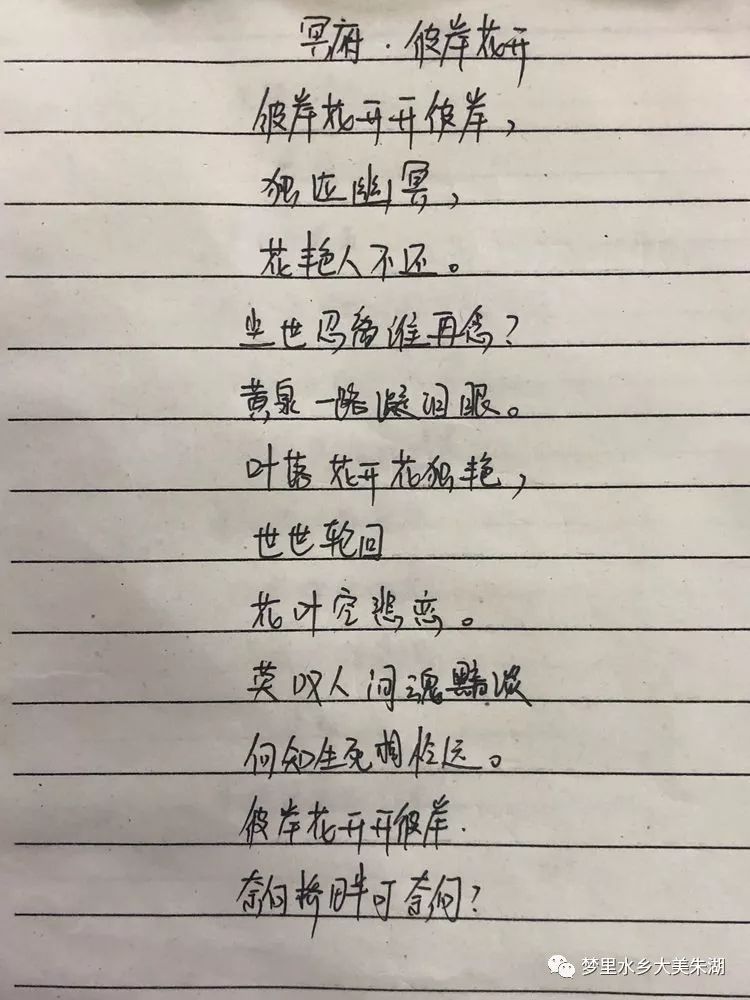 冥府·彼岸花开
彼岸花开开彼岸，
独泣幽冥，
花艳人不还。
尘世忍离谁再念？
黄泉一路凝泪眼。
叶落花开花独艳，
世世轮回
花叶空悲恋。
莫叹人间魂黯淡
何知生死相怜远。
彼岸花开开彼岸.
奈何桥畔可奈何？
梦里水乡大美朱湖